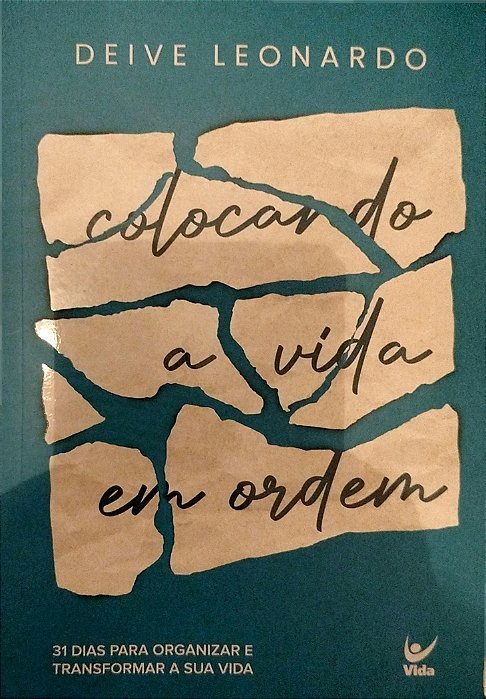 DEIVE LEONARDO
colocando
a vida
em ordem
31 DIAS PARA ORGANIZAR E
TRANSFORMAR A SUA VIDA
Vida